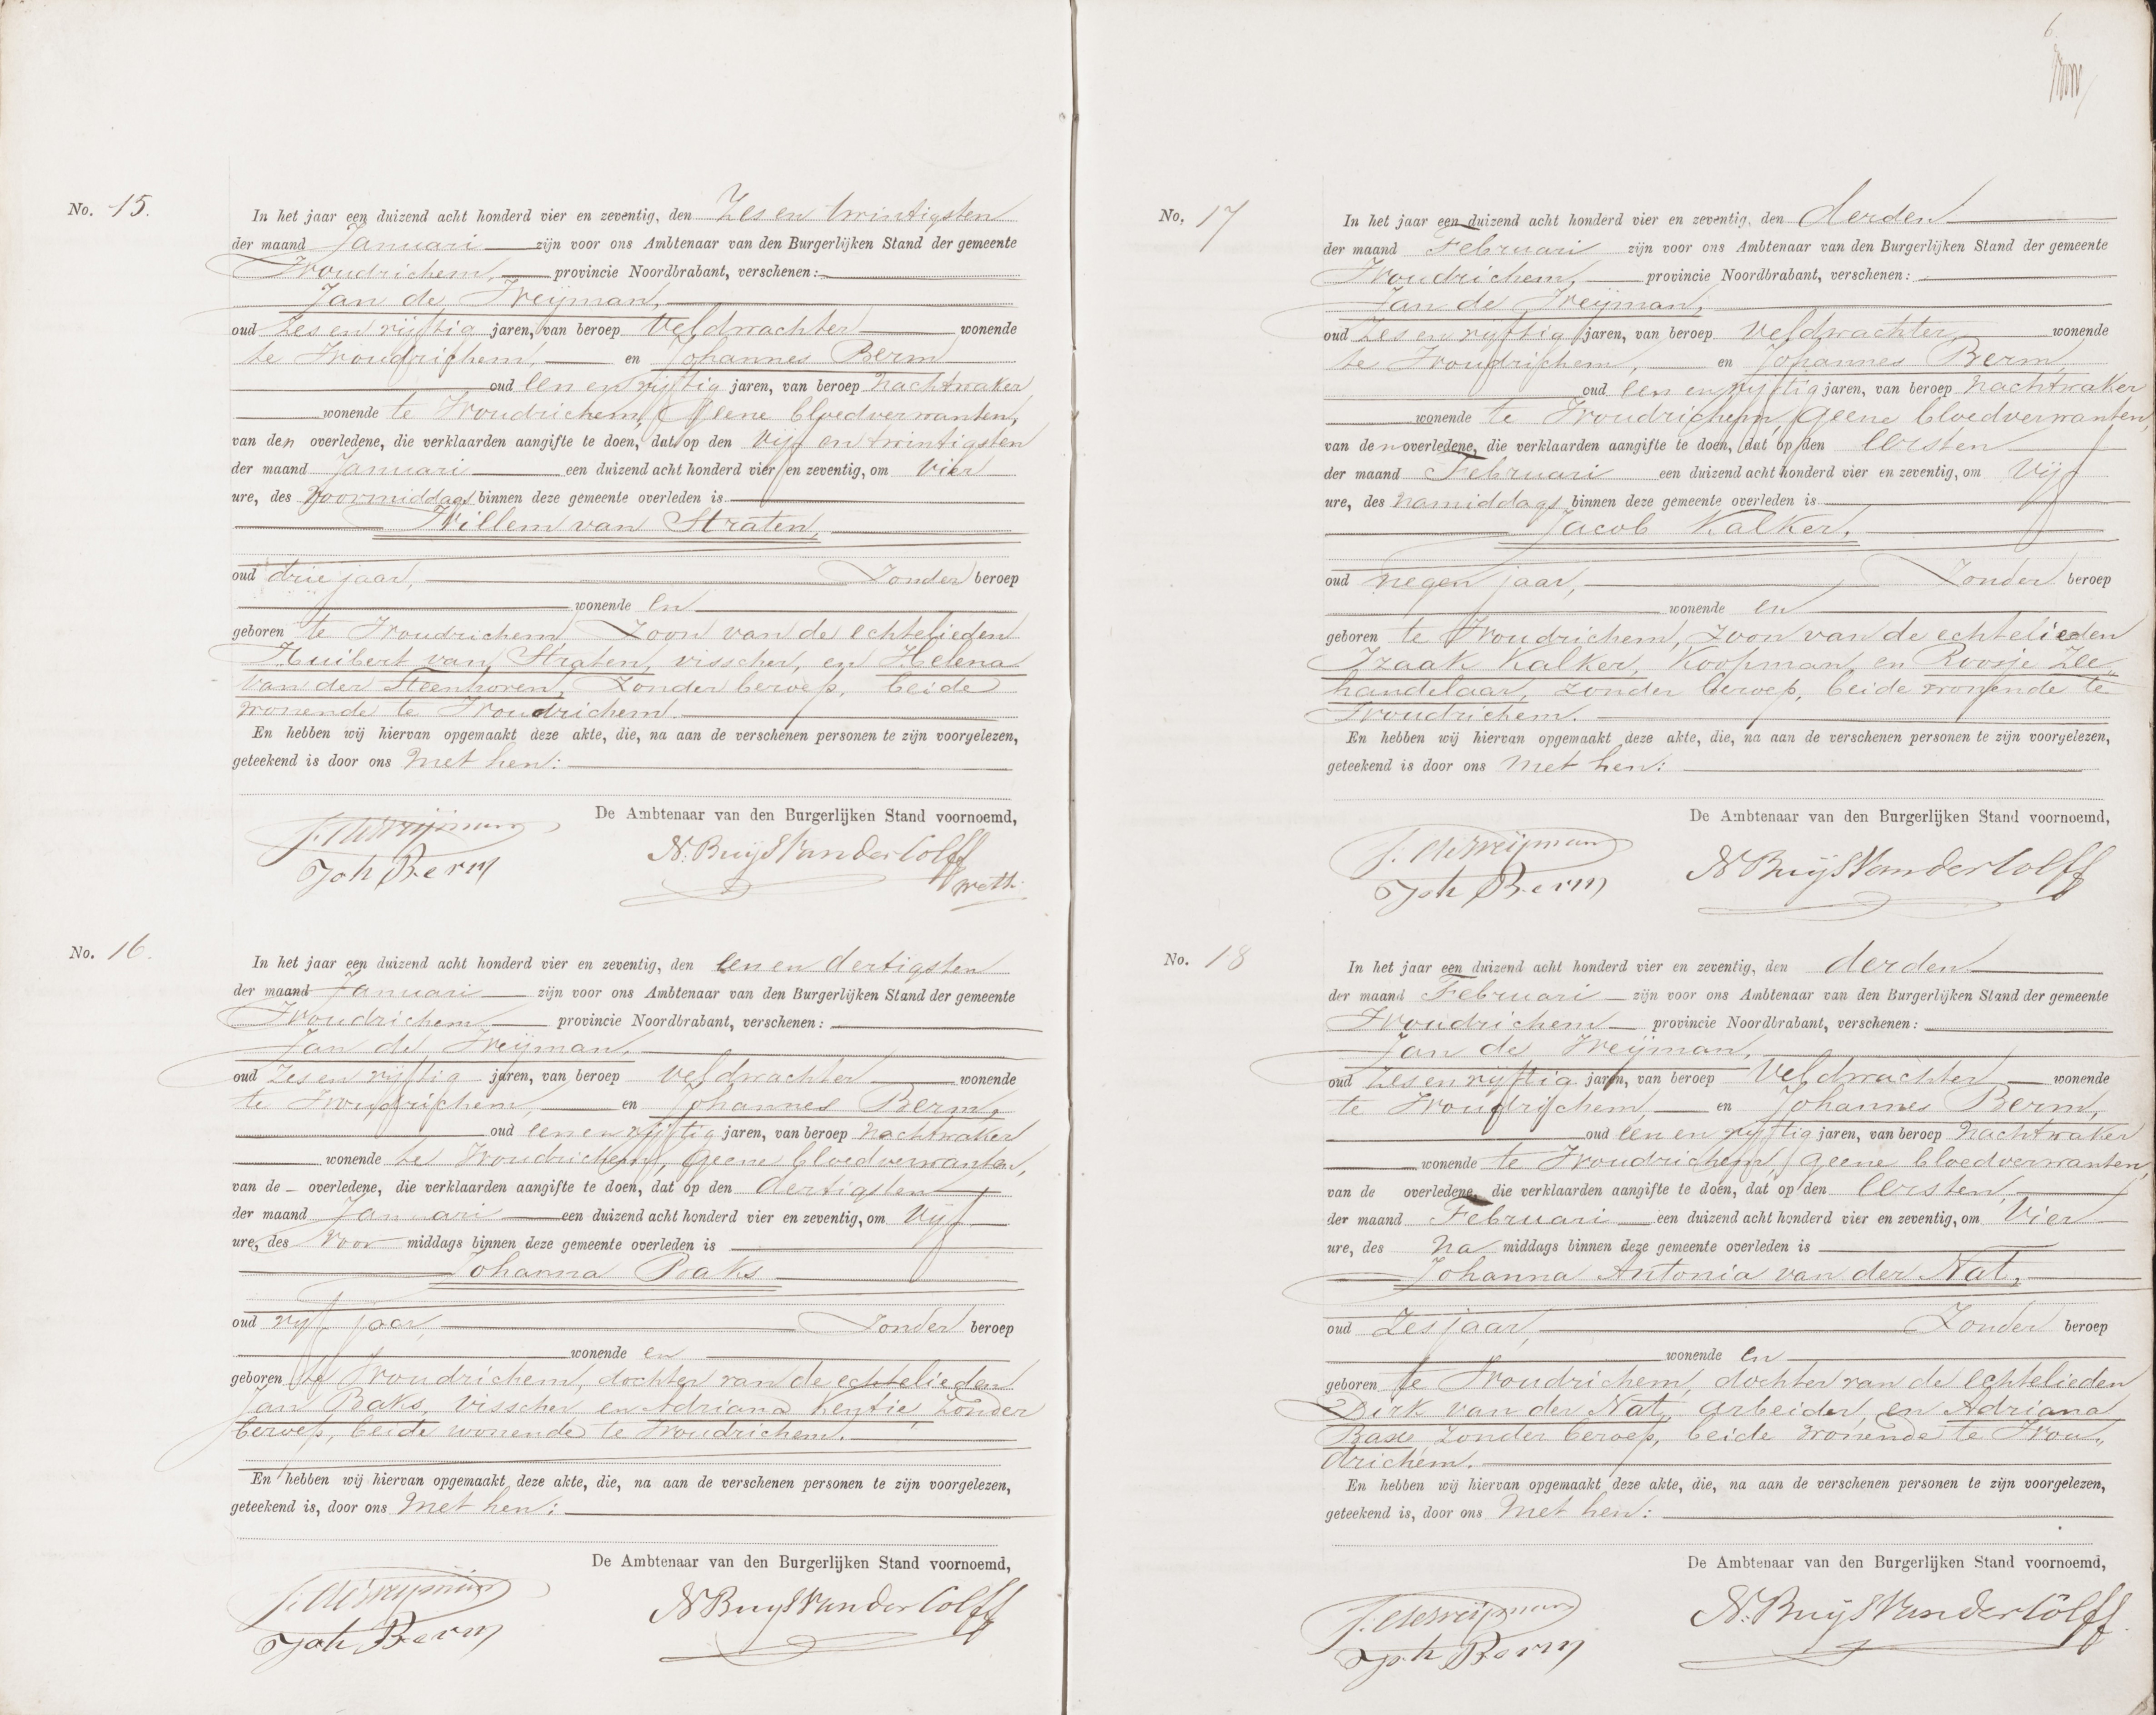 No. 15.
In het jaar een duizend acht honderd vier en zeventig, den Zes en twintigsten
der maand Januari zijn voor ons Ambtenaar van den Burgerlijken Stand der gemeente
Woudrichem, provincie Noordbrabant, verschenen:
Jan de Weijman,
oud Zes en vijftig jaren, van beroep Veldwachter wonende
te Woudrichem, en Johannes Berm
oud een en vijftig jaren, van beroep Nachtwaker
wonende te Woudrichem, geene bloedverwanten,
van den overledene, die verklaarden aangifte te doen, dat op den Vijf en twintigsten
der maand Januari een duizend acht honderd vier en zeventig, om Vier
ure, des Voormiddags binnen deze gemeente overleden is
Willem van Straten,
oud drie jaar, Zonder beroep
wonende en
geboren te Woudrichem, Zoon van de echtelieden
Huibert van Straten, visscher, en Helena
van der Steenhoven, Zonder beroep, beide
wonende te Woudrichem.
En hebben wij hiervan opgemaakt deze akte, die, na aan de verschenen personen te zijn voorgelezen,
geteekend is door ons met hen:
De Ambtenaar van den Burgerlijken Stand voornoemd,
J. de Weijman
Joh Berm
N. Buijs van der Colff
weth.
No. 16.
In het jaar een duizend acht honderd vier en zeventig, den een en dertigsten
der maand Januari zijn voor ons Ambtenaar van den Burgerlijken Stand der gemeente
Woudrichem provincie Noordbrabant, verschenen:
Jan de Weijman,
oud Zes en vijftig jaren, van beroep Veldwachter wonende
te Woudrichem, en Johannes Berm,
oud een en vijftig jaren, van beroep Nachtwaker
wonende te Woudrichem, geene bloedverwanten,
van de – overledene, die verklaarden aangifte te doen, dat op den dertigsten
der maand Januari een duizend acht honderd vier en zeventig, om Vijf
ure, des Voor middags binnen deze gemeente overleden is
Johanna Baks
oud vijf jaar, Zonder beroep
wonende en
geboren te Woudrichem, dochter van de echtelieden
Jan Baks, visscher en Adriana Kentie Zonder
beroep, beide wonende te Woudrichem.
En hebben wij hiervan opgemaakt deze akte, die, na aan de verschenen personen te zijn voorgelezen,
geteekend is, door ons met hen:
De Ambtenaar van den Burgerlijken Stand voornoemd,
J. de Weijman
Joh Berm
N Buijs van der Colff
6
No. 17
In het jaar een duizend acht honderd vier en zeventig, den derden
der maand Februari zijn voor ons Ambtenaar van den Burgerlijken Stand der gemeente
Woudrichem, provincie Noordbrabant, verschenen:
Jan de Weijman,
oud Zes en vijftig jaren, van beroep Veldwachter wonende
te Woudrichem, en Johannes Berm,
oud een en vijftig jaren, van beroep Nachtwaker
wonende te Woudrichem, geene bloedverwanten,
van den overledene, die verklaarden aangifte te doen, dat op den eersten
der maand Februari een duizend acht honderd vier en zeventig, om Vijf
ure, des namiddags binnen deze gemeente overleden is
Jacob Kalker,
oud negen jaar, Zonder beroep
wonende en
geboren te Woudrichem, zoon van de echtelieden
Izaak Kalker, Koopman, en Roosje Zee„
handelaar, zonder beroep, beide wonende te
Woudrichem.
En hebben wij hiervan opgemaakt deze akte, die, na aan de verschenen personen te zijn voorgelezen,
geteekend is door ons met hen:
De Ambtenaar van den Burgerlijken Stand voornoemd,
J. de Weijman
Joh Berm
N Buijs van der Colff
No. 18
In het jaar een duizend acht honderd vier en zeventig, den derden
der maand Februari zijn voor ons Ambtenaar van den Burgerlijken Stand der gemeente
Woudrichem provincie Noordbrabant, verschenen:
Jan de Weijman,
oud Zes en vijftig jaren, van beroep Veldwachter wonende
te Woudrichem, en Johannes Berm,
oud een en vijftig jaren, van beroep Nachtwaker
wonende te Woudrichem, geene bloedverwanten,
van de overledene, die verklaarden aangifte te doen, dat op den eersten,
der maand Februari een duizend acht honderd vier en zeventig, om Vier
ure, des Na middags binnen deze gemeente overleden is
Johanna Antonia van der Nat,
oud Zes jaar, Zonder beroep
wonende en
geboren te Woudrichem, dochter van de echtelieden
Dirk van der Nat, arbeider, en Adriana
Bax, zonder beroep, beide wonende te Wou„
drichem.
En hebben wij hiervan opgemaakt deze akte, die, na aan de verschenen personen te zijn voorgelezen,
geteekend is, door ons met hen:
De Ambtenaar van den Burgerlijken Stand voornoemd,
J. de Weijman
Joh Berm
N. Buijs van der Colff